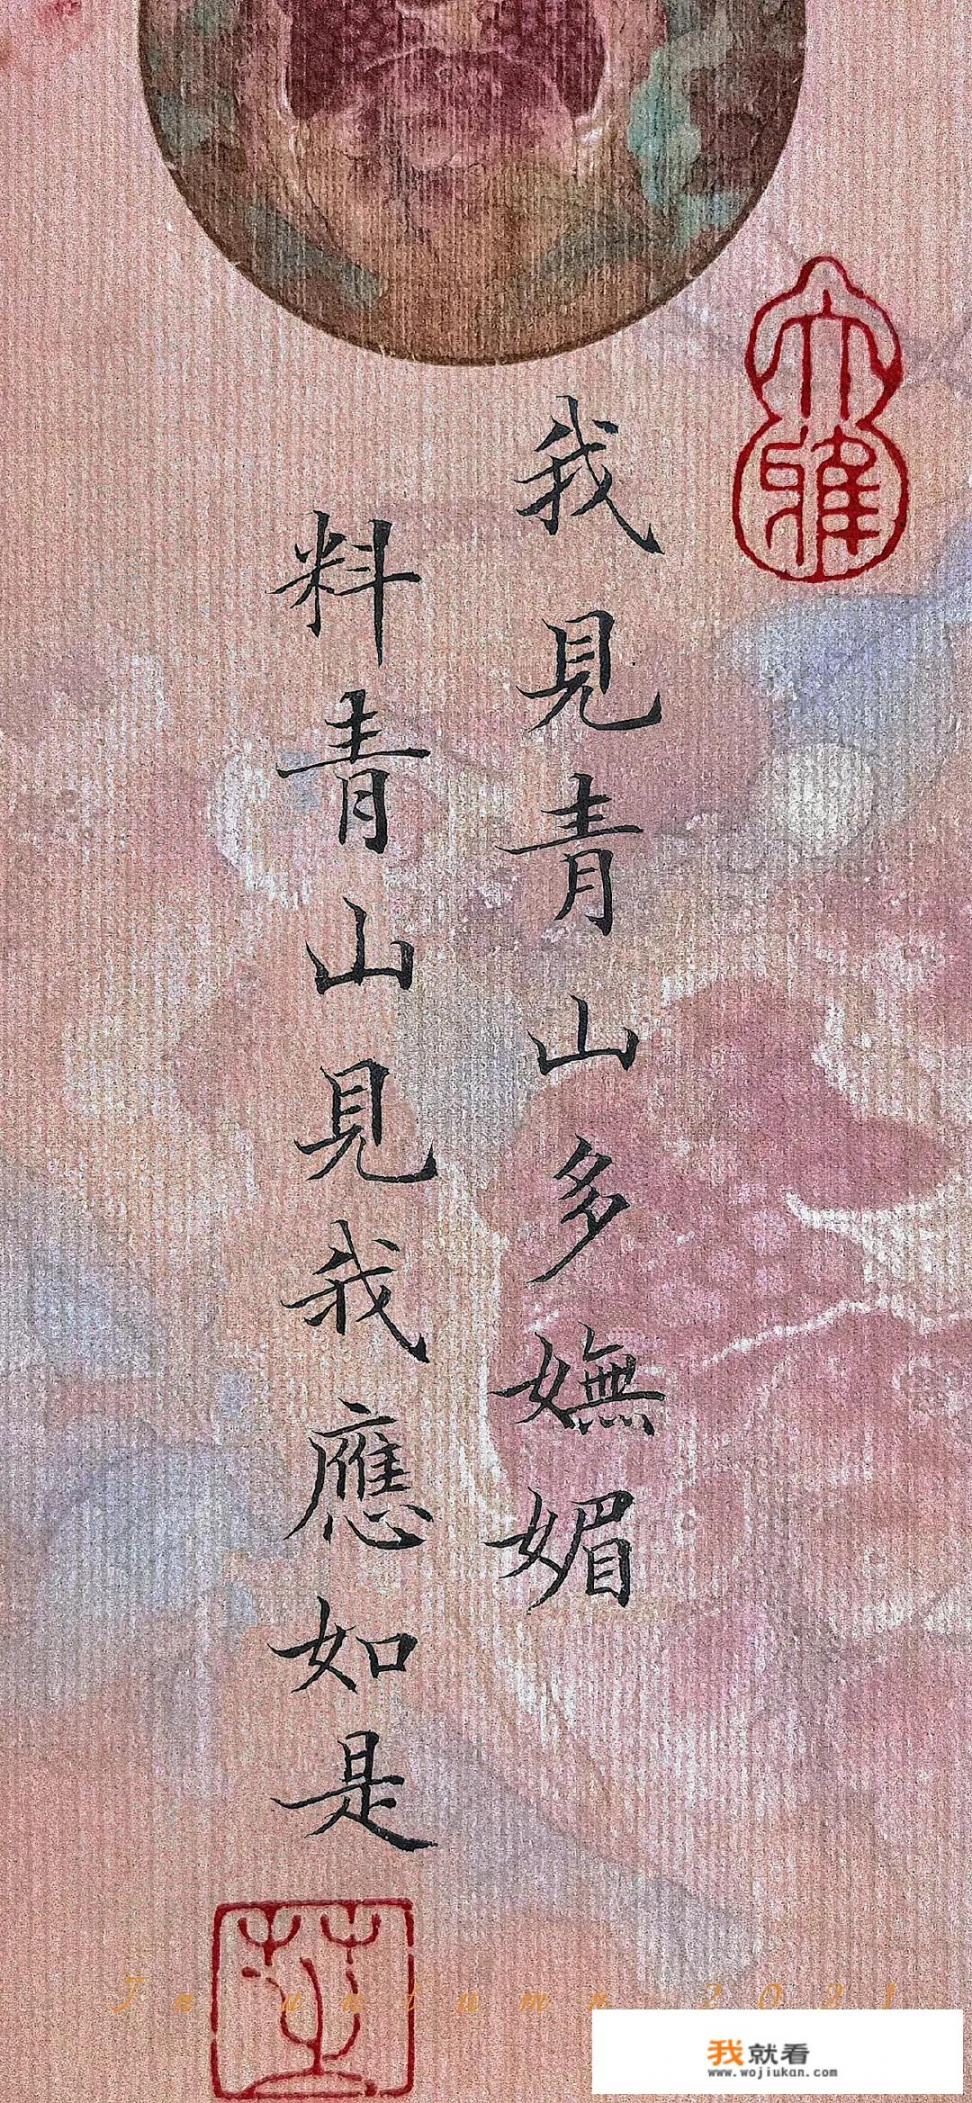 我見青山多嫵媚
料青山見我應如是
大雅
2021
我就看
www.wojiukan.com